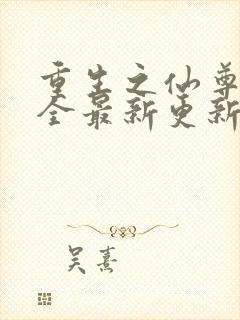 重生之仙尊
全最新更新
吴熹